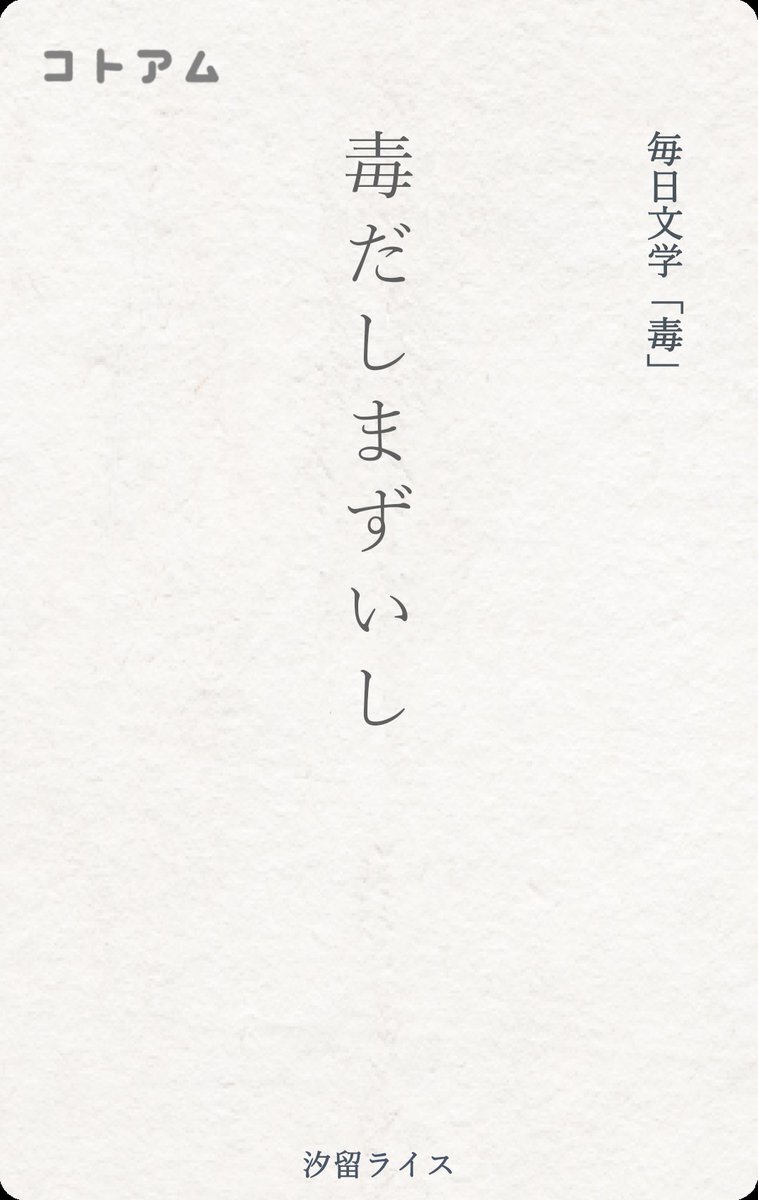 コトアム
毎日文学「毒」
毒だしまずいし
汐留ライス